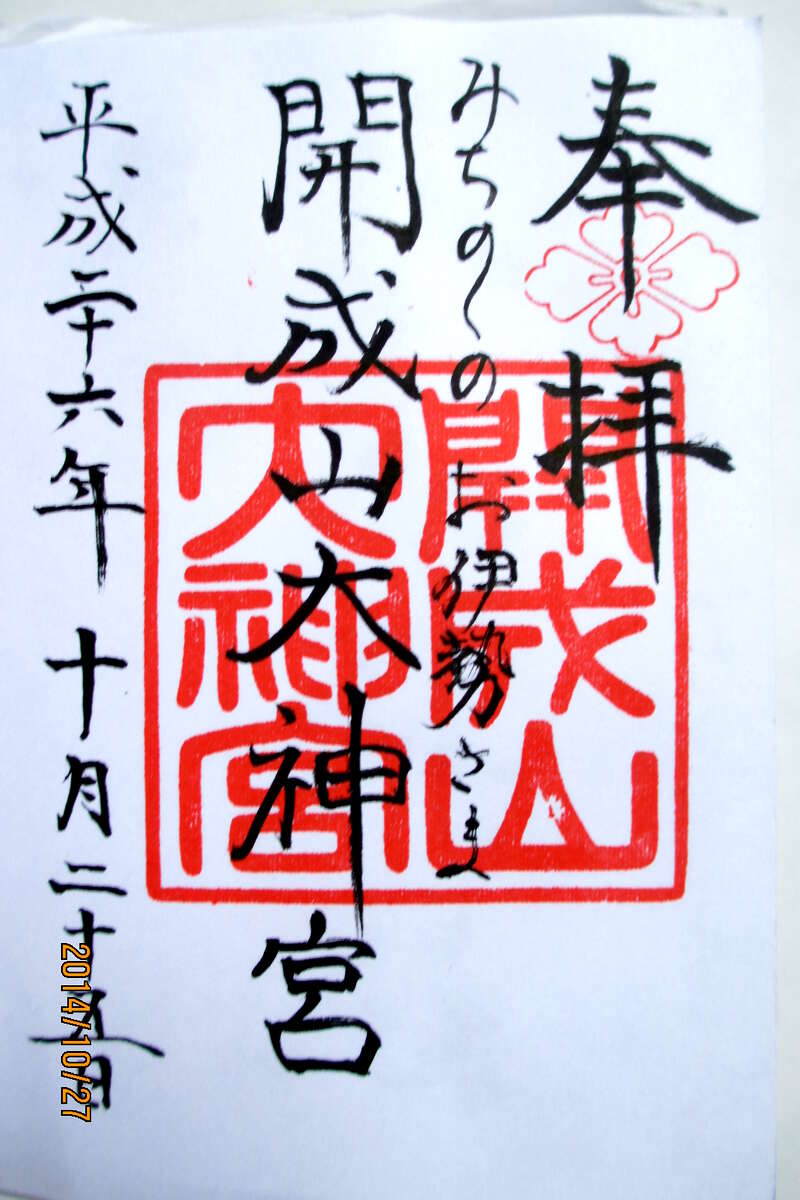 奉拝
みちのくのお伊勢さま
開成山大神宮
開成山
大神宮
平成二十六年十月二十五日
2014/10/27